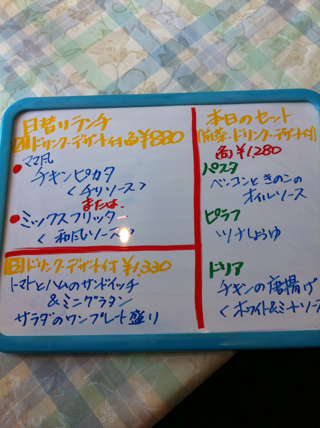 日替りランチ
A ドリンク・デザート付 各¥880
ママ風
チキンピカタ
<チリソース>
または
ミックスフリッター
<和風ソース>
B ドリンク・デザート付 ¥1,330
トマトとハムのサンドイッチ
&ミニグラタン
サラダのワンプレート盛り
本日のセット
(前菜・ドリンク・デザート付)
各¥1280
パスタ
ベーコンときのこの
オイルソース
ピラフ
ツナしょうゆ
ドリア
チキンの唐揚げ
<ホワイト&ミートソー